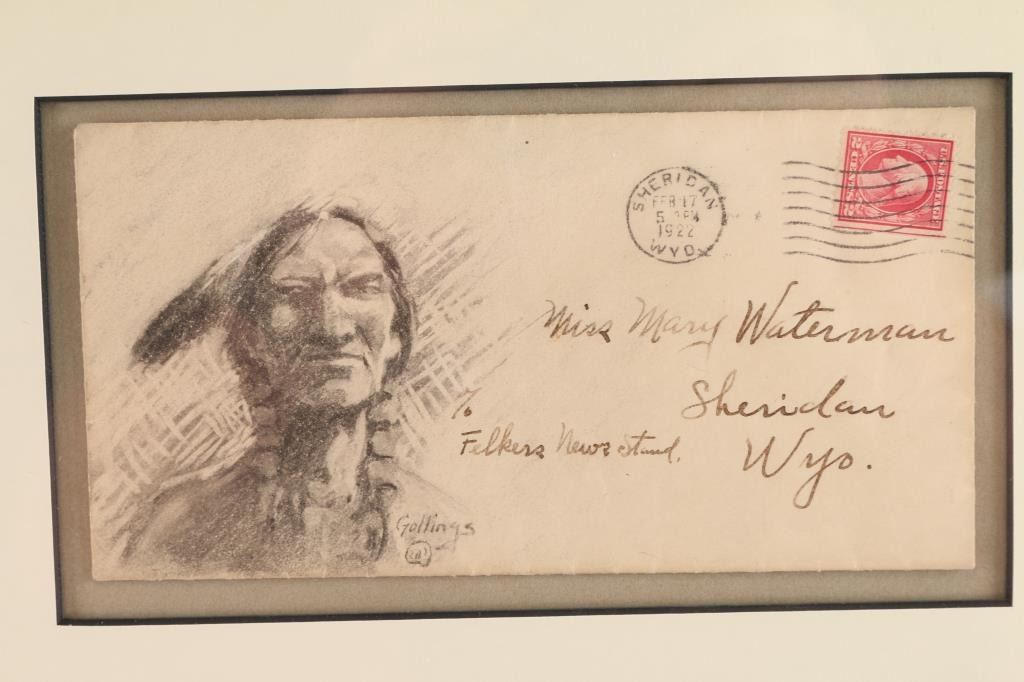 SHERIDAN
FEB 17
5 PM
1922
WYO.
Miss Mary Waterman
Sheridan
%
Felkers News Stand.
Wyo.
Gollings